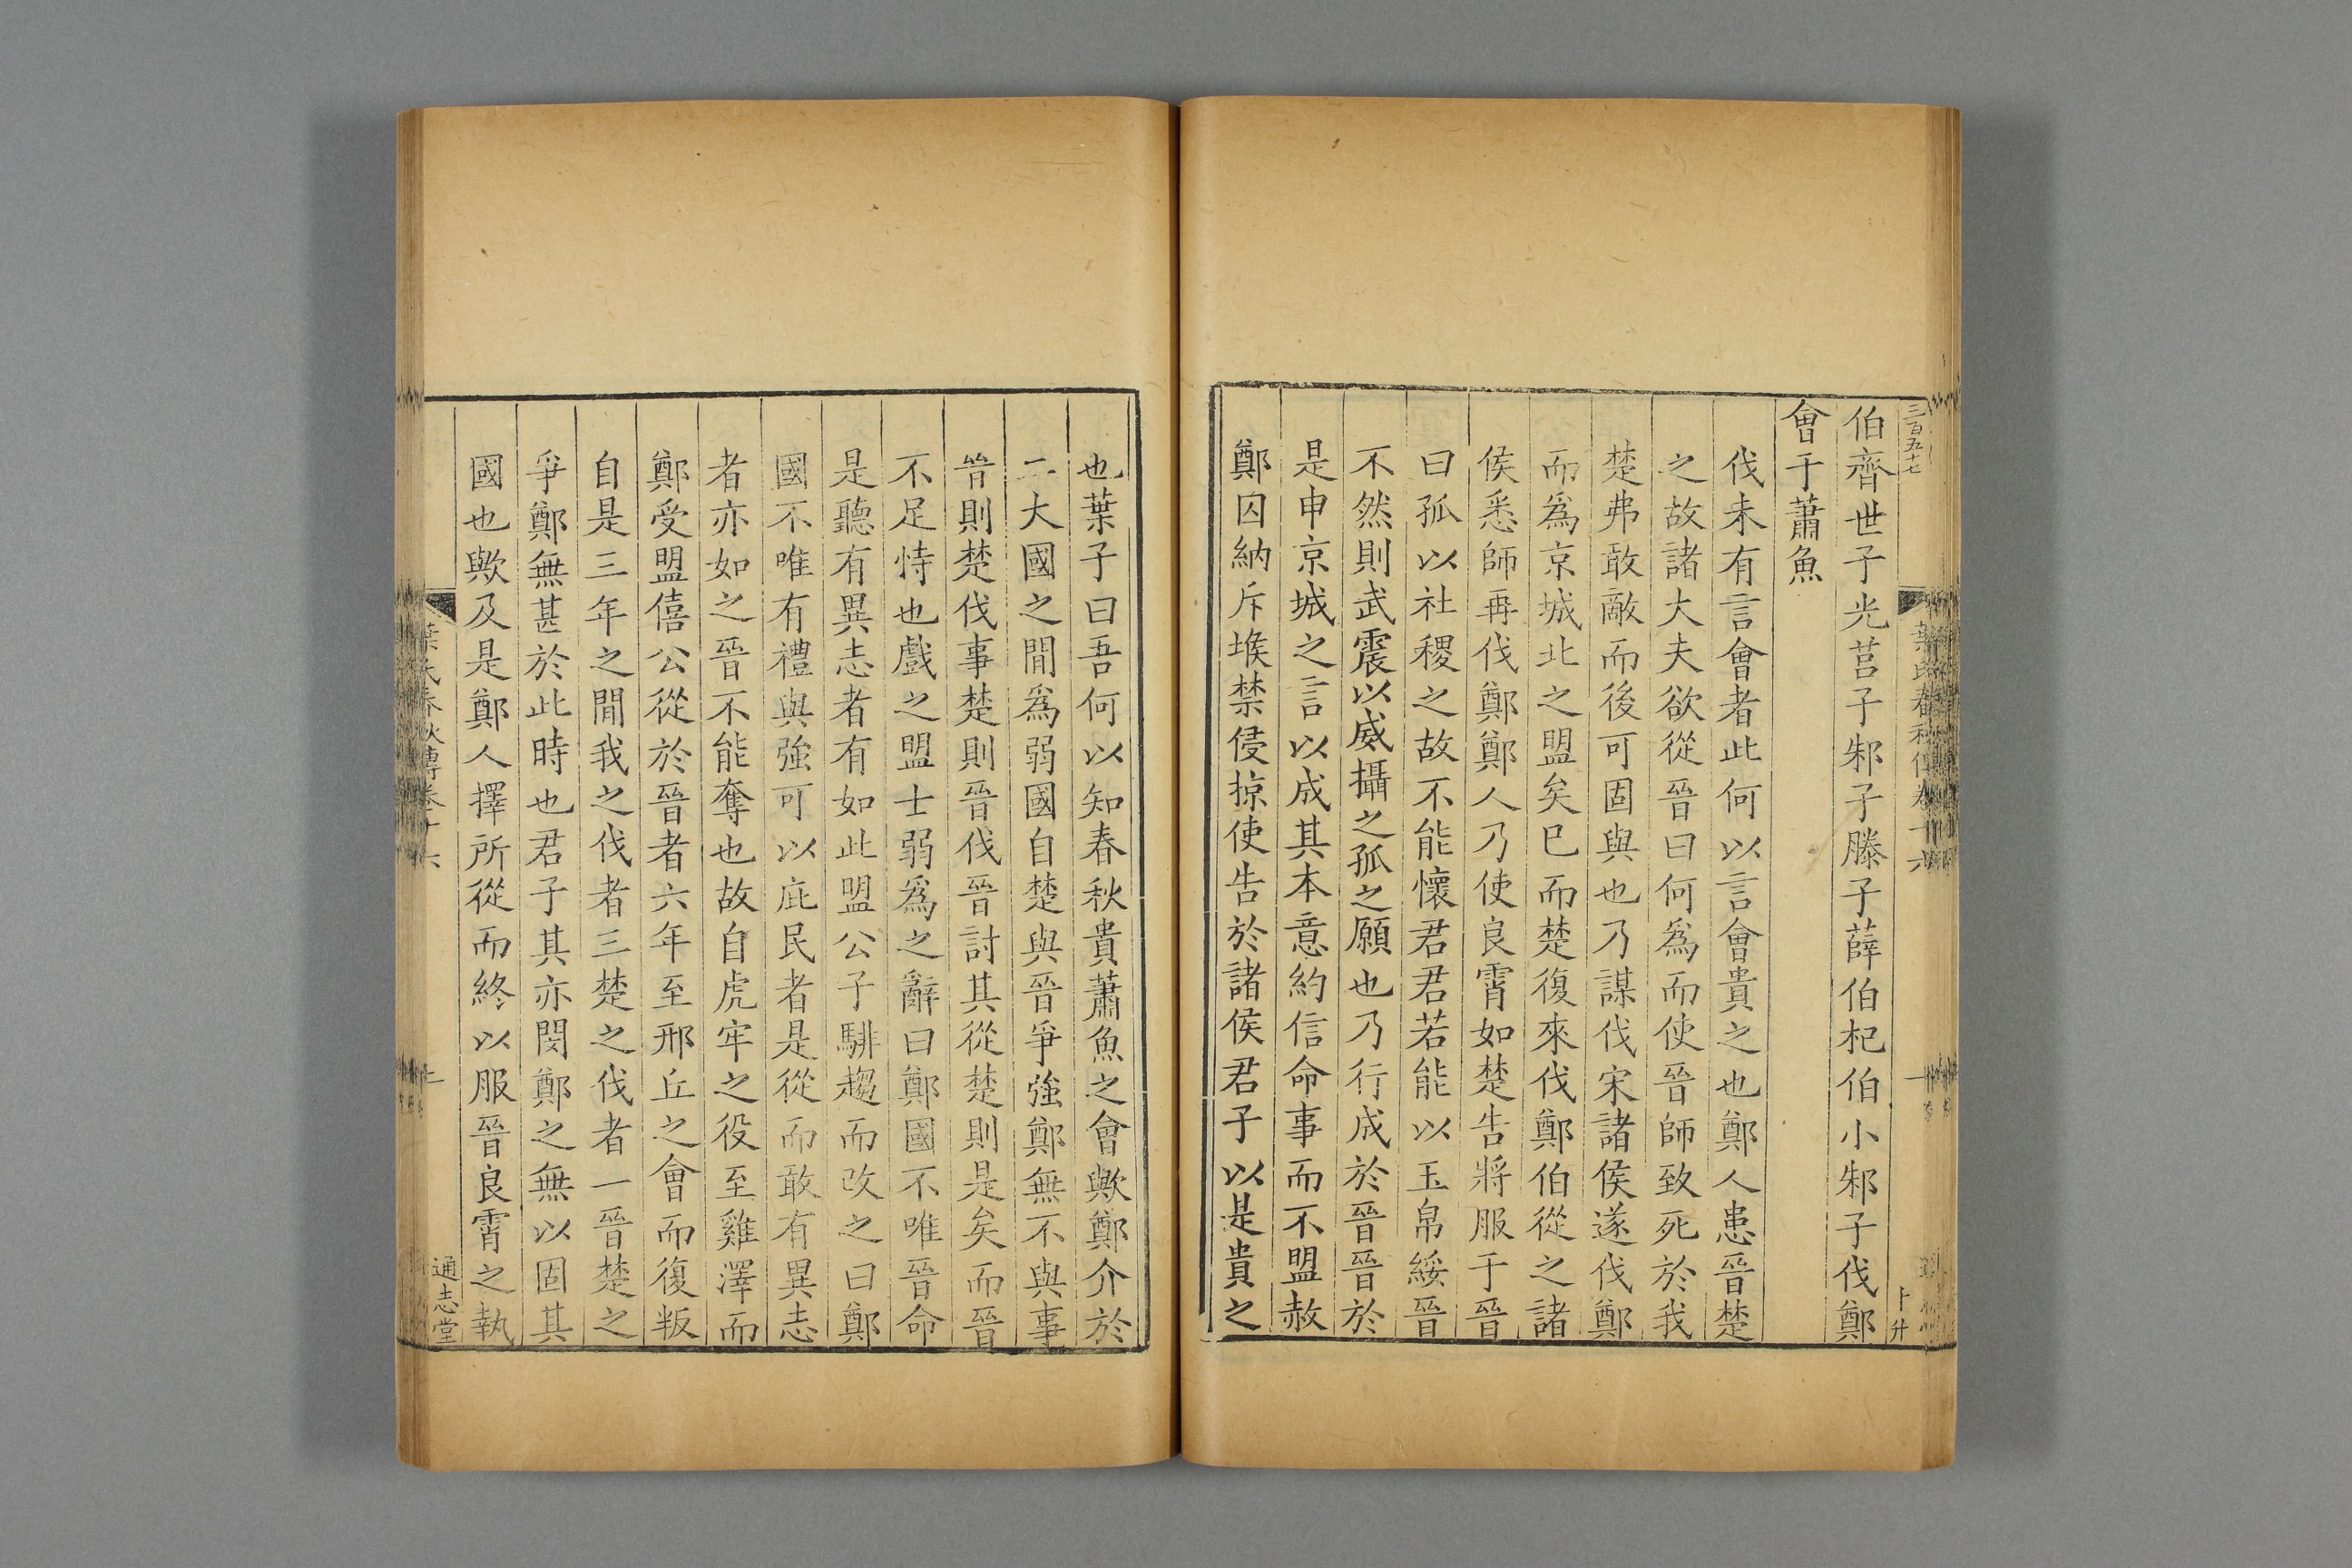 三百五七
伯齊世子光莒子邾子滕子薛伯杞伯小邾子伐鄭
會于蕭魚
伐未有言會者此何以言會貴之也鄭人患晉楚
之故諸大夫欲從晉曰何為而使晉師致死於我
楚弗敢敵而後可固與也乃謀伐宋諸侯遂伐鄭
而為京城北之盟矣巳而楚復來伐鄭伯從之諸
侯悉師再伐鄭鄭人乃使良霄如楚告將服于晉
曰孤以社稷之故不能懷君君若能以玉帛綏晉
不然則武震以威攝之孤之願也乃行成於晉晉於
是申京城之言以成其本意約信命事而不盟赦
鄭囚納斥堠禁侵掠使告於諸侯君子以是貴之
也葉子曰吾何以知春秋貴蕭魚之會歟鄭介於
二大國之間爲弱國自楚與晉爭強鄭無不與事
晉則楚伐事楚則晉伐晉討其從楚則是矣而晉
不足恃也戲之盟士弱爲之辭曰鄭國不唯晉命
是聽有異志者有如此盟公子騑趨而改之曰鄭
國不唯有禮與強可以庇民者是從而敢有異志
者亦如之晉不能奪也故自虎牢之役至雞澤而
鄭受盟僖公從於晉者六年至邢丘之會而復叛
自是三年之間我之伐者三楚之伐者一晉楚之
爭鄭無甚於此時也君子其亦閔鄭之無以固其
國也歟及是鄭人擇所從而終以服晉良霄之執
葉氏春秋傳卷十六
通志堂